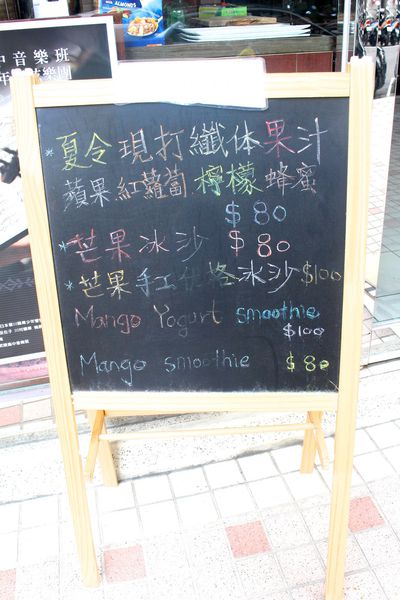 ALMONDS
中音樂班
*夏令現打纖体果汁
蘋果紅蘿蔔檸檬蜂蜜
$80
*芒果冰沙 $80
*芒果手工优格冰沙$100
Mango Yogurt smoothie
$100
Mango smoothie $80